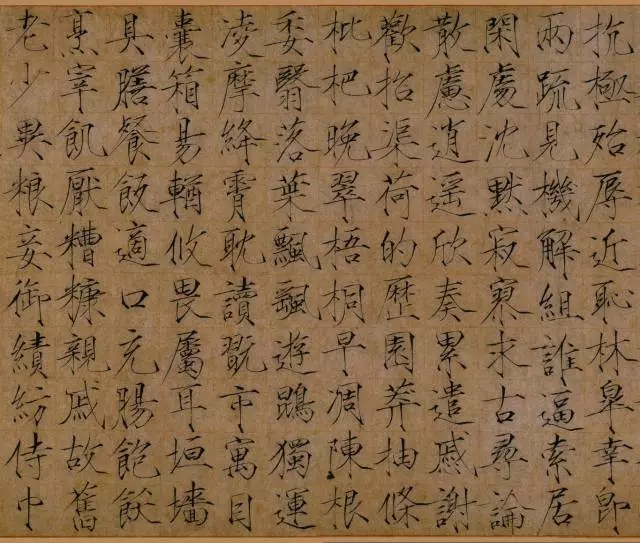 抗極殆辱近恥林皐幸即
兩疏見機解組誰逼索居
閑處沈默寂寥求古尋論
散慮逍遥欣奏累遣慼謝
歡招渠荷的歷園莽抽條
枇杷晚翠梧桐早凋陳根
委翳落葉飄颻遊鵾獨運
凌摩絳霄耽讀翫市寓目
囊箱易輶攸畏屬耳垣墻
具膳餐飯適口充腸飽飫
烹宰飢厭糟糠親戚故舊
老少異粮妾御績紡侍巾